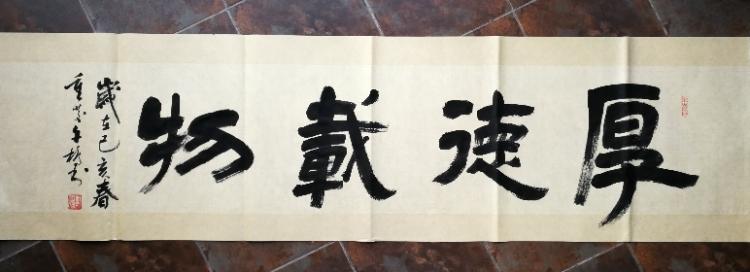 厚德載物
歲在己亥春